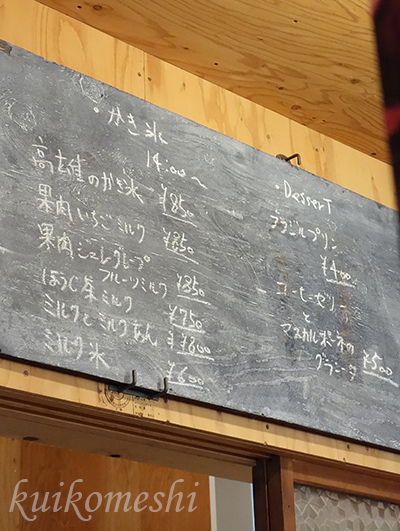 ・かき氷
14:00〜
高雄のかき氷 ¥850
果肉いちごミルク ¥850
果肉シュレグレープ
フルーツミルク ¥850
ほうじ茶ミルク ¥750
ミルクとミルクあん ¥800
ミルク氷 ¥600
・DesserT
ブラジルプリン
¥400
コーヒーゼリー
と
マスカルポーネの
グラニータ ¥500
kuikomeshi